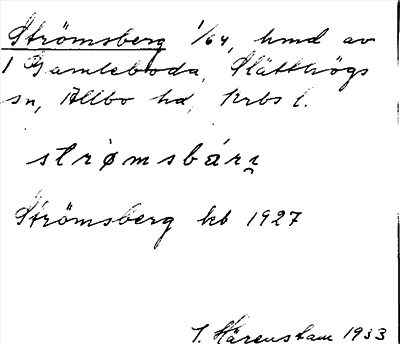 Strömsberg 1/64, hmd av
1 Gamleboda, Slätthögs
sn, Allbo hd, Krbs l.
strømsbárɪ̯
Strömsberg kb 1927
J. Härenstam 1933